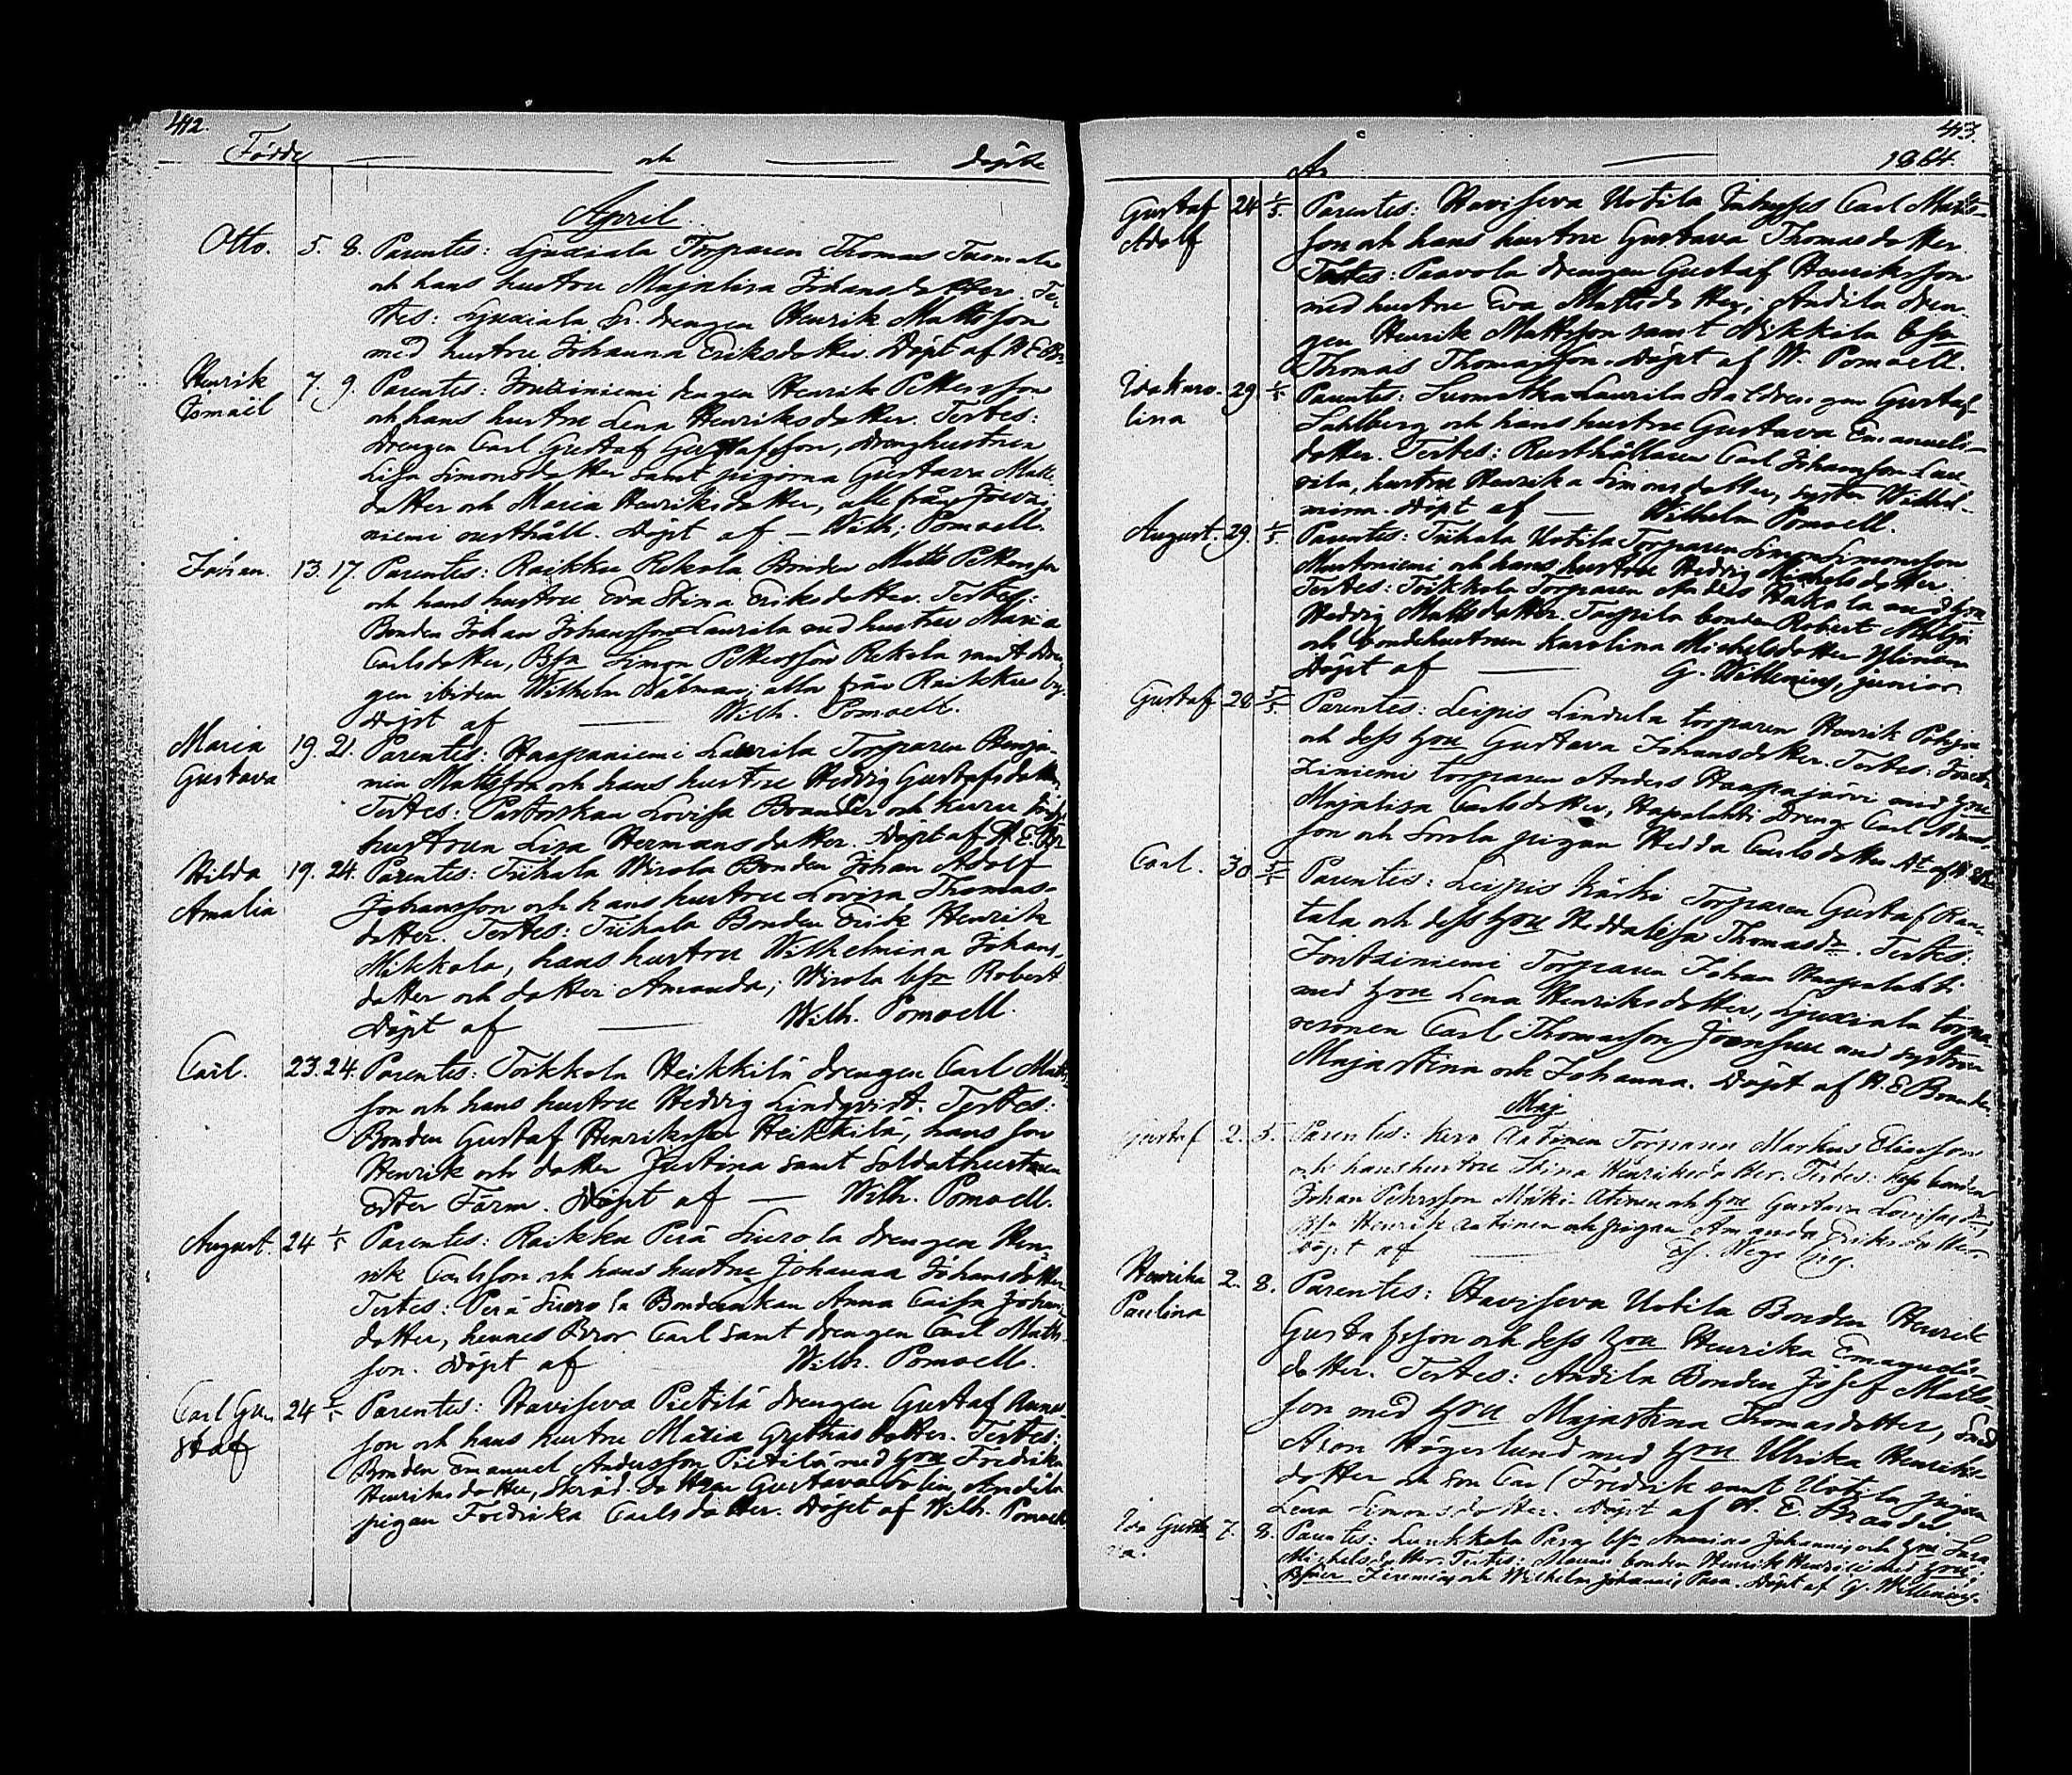 42.
Födde och döpte
April
Otto. 5. 8. Parentes: Ljuxiala Torparen Thomas Tuomala
och hans hustru Majalisa Johansdotter. Te-
stes: Ljuxiala Sr. drengen Henrik Mattsson
med hustru Johanna Eriksdotter. Döpt af H E Br.
Henrik 7. 9. Parentes: Jontziniemi drengen Henrik Pettersson
Ismaël och hans hustru Lena Henriksdotter. Testes:
Drengen Carl Gustaf Gustafsson, drenghustrun
Lisa Simonsdotter samt pigorna Gustava Matts
dotter och Maria Henriksdotter, alle från
niemi rusthåll. Döpt af — Wilh. Pomoell.
Johan. 13. 17. Parentes: Raikku Rekola Bonden Matts Pettersson
och hans hustru Eva Stina Eriksdotter. Testes:
Bonden Johan Johansson Laurila med hustru Maria
Carlsdotter, Bsn Simon Pettersson Rekola samt dren-
gen ibidem Wilhelm alla från Raikku by.
Döpt af — Wilh. Pomoell.
Maria 19. 21. Parentes: Haapaniemi Laurila Torparen Benja-
Gustava min Mattsson och hans hustru Hedvig Gustafsdotter,
Testes: Pastorskan Lovisa Brander och
hustrun Lisa Hermansdotter. Döpt af H. E. Br
Hilda 19. 24. Parentes: Tiihala Wirola Bonden Johan Adolf
Amalia Johansson och hans hustru Lovisa Thomas-
dotter. Testes: Tiihala Bonden Erik Henrik
Mikkola, hans hustru Wilhelmina Johans-
dotter och dotter Amanda, Wirola bsn Robert
Döpt af — Wilh. Pomoell.
Carl. 23. 24. Parentes: Toikkola Heikkilä drengen Carl Matts-
son och hans hustru Hedvig Lindqvist. Testes:
Bonden Gustaf Henriksson Heikkilä, hans son
Henrik och dotter Justina samt Soldathustrun
Ester Färm. Döpt af — Wilh. Pomoell.
August. 24 1/5 Parentes: Raikku Perä Suorola drengen Hen-
rik Carlsson och hans hustru Johanna Johansdotter
Testes: Perä Suorola Bondeenkan Anna Caisa Johans
dotter, hennes Bror Carl samt drengen Carl Matts-
son. Döpt af Wilh. Pomoell.
Carl Gu- 24 1/5 Parentes: Haviseva Pietilä drengen Gustaf
staf son och hans hustru Maria dotter. Testes:
Bonden Emanuel Andersson Pietilä med hru Fredrika
Henriksdotter, Skräd. dottren Gustava Andila
pigan Fredrika Carlsdotter. Döpt af Wilh. Pomoell
43.
År 1864.
Gustaf 24 1/5 Parentes: Haviseva Uotila Inhyses Carl Matts-
Adolf son och hans hustru Gustava Thomasdotter
Testes: Paavola drengen Gustaf Henriksson
med hustru Eva Mattsdotter; Andila dren-
gen Henrik Mattsson samt Mikkola bsn
Thomas Thomasson. Döpt af W. Pomoell.
Ida Karo- 29 1/5 Parentes: Suomatka Laurila Stalldrengen Gustaf
lina Sahlberg och hans hustru Gustava Emanuels-
dotter. Testes: Rusthållaren Carl Johansson Lau-
rila, hustru Henrika Simonsdotter, syster Wilhel-
mina. Döpt af — Wilhelm Pomoell.
August. 29. 1/5 Parentes: Tiihala Uotila Torparen Simon Simonsson
Mustoniemi och hans hustru Hedvig Michelsdotter.
Testes: Toikkola Torparen Anders Hakala med hru
Hedvig Mattsdotter. Torpila bonden Robert
och bondehustrun Karolina Michelsdotter Ylinen
Döpt af — G. Willenius, junior.
Gustaf 28 5/5 Parentes: Leipis Lindula torparen Henrik
och dess hru Gustava Johansdotter. Testes: Jont-
ziniemi torparen Anders Haapajärvi med hru
Majalisa Carlsdotter, Haapalahti dreng Carl Adams-
son och Sorola pigan Hedda Carlsdotter. Dt af H E Br
Carl. 30 5/5 Parentes: Leipis Käski Torparen Gustaf Ran-
tala och dess hru Heddalisa Thomasdr. Testes:
Jontziniemi Torparen Johan Haapalahti
med hru Lena Henriksdotter, Ljuxiala torpa-
resonen Carl Thomasson Joensuu med systrar
Majastina och Johanna. Döpt af H. E Brander
Maj
Gustaf 2. 5. Parentes: Kerv Aatinen Torparen Markus Eliasson
och hans hustru Stina Henriksdotter. Testes: bonden
Johan Pehrsson Mäki-Atinen och hru Gustava Lovisa
Bsn Henrik Aatinen och pigan Amanda Eriksdotter
Döpt af —
Henrika 2. 8. Parentes: Haviseva Uotila Bonden Henrik
Paulina Gustafsson och dess hru Henrika Emanuels-
dotter. Testes: Andila Bonden Josef Matts-
son med hru Majastina Thomasdotter,
Aron Högerlund med hru Ulrika Henriks-
dotter och son Carl Fredrik samt Uotila pigan
Lena Simonsdotter. Döpt af H. E. Brander
Ida Gusta 7. 8. Parentes: Lunkkola Para bsn Ananias Johansson och hru Sara
va. Michelsdotter. Testes: bonden Henrik Henriksson med hru;
Bsner Jeremias och Wilhelm Johanis Para. Döpt af G. Willenius.